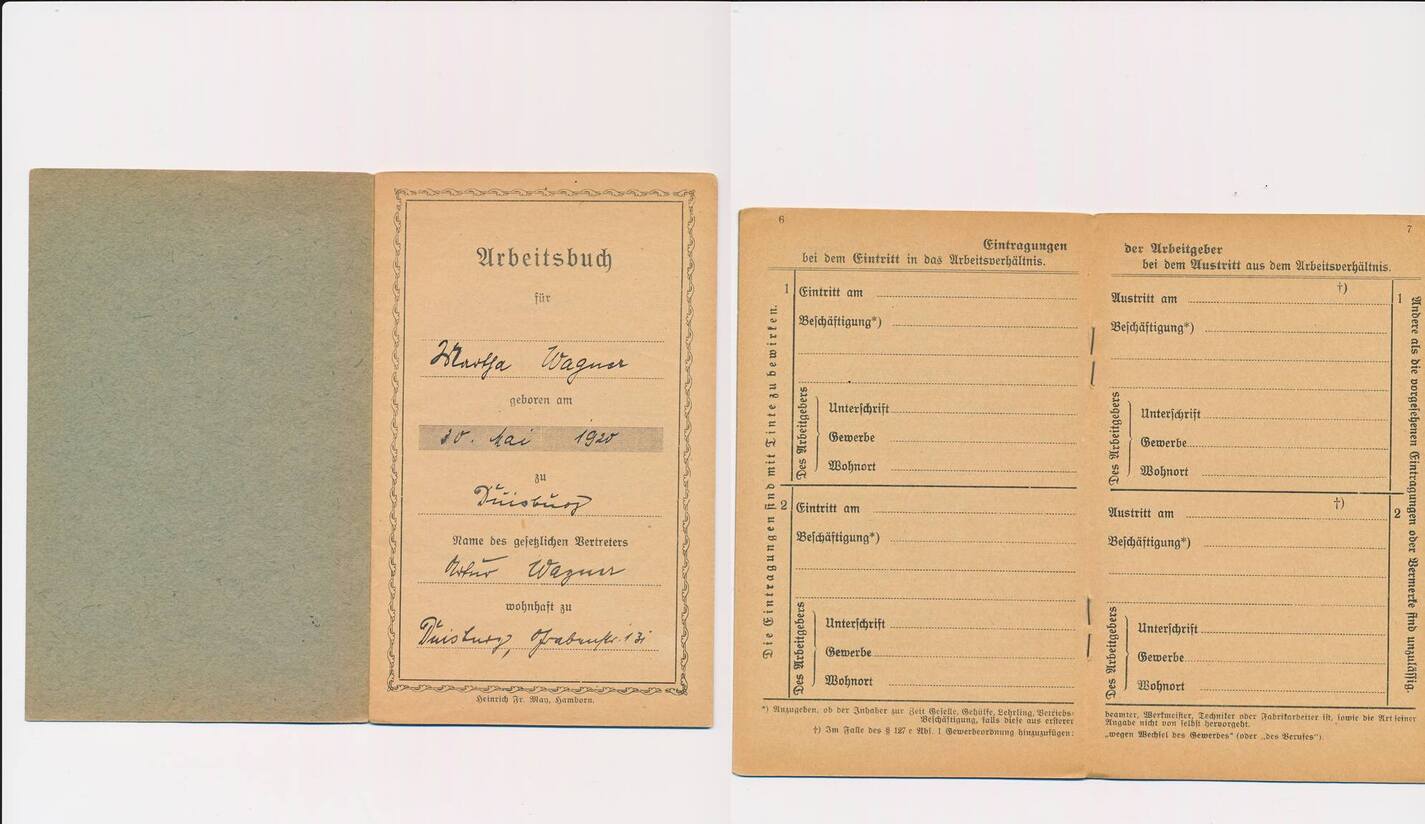 Arbeitsbuch
für
Martha Wagner
geboren am
30. Mai 1920
zu
Duisburg
Name des gesetzlichen Vertreters
Artur Wagner
wohnhaft zu
Duisburg, Grabenstr. 131
Heinrich Fr. May, Hamborn.
6
Eintragungen
bei dem Eintritt in das Arbeitsverhältnis.
Die Eintragungen sind mit Tinte zu bewirken.
1
Eintritt am
Beschäftigung*)
Des Arbeitgebers
Unterschrift
Gewerbe
Wohnort
2
Eintritt am
Beschäftigung*)
Des Arbeitgebers
Unterschrift
Gewerbe
Wohnort
*) Anzugeben, ob der Inhaber zur Zeit Geselle, Gehülfe, Lehrling, Betriebs-
Beschäftigung, falls diese aus ersterer
†) Im Falle des § 127 e Abs. 1 Gewerbeordnung hinzuzufügen:
7
der Arbeitgeber
bei dem Austritt aus dem Arbeitsverhältnis.
†)
1
Austritt am
Beschäftigung*)
Des Arbeitgebers
Unterschrift
Gewerbe
Wohnort
†)
2
Austritt am
Beschäftigung*)
Des Arbeitgebers
Unterschrift
Gewerbe
Wohnort
Andere als die vorgesehenen Eintragungen oder Vermerke sind unzulässig.
beamter, Werkmeister, Techniker oder Fabrikarbeiter ist, sowie die Art seiner
Angabe nicht von selbst hervorgeht.
„wegen Wechsel des Gewerbes“ (oder „des Berufes“).